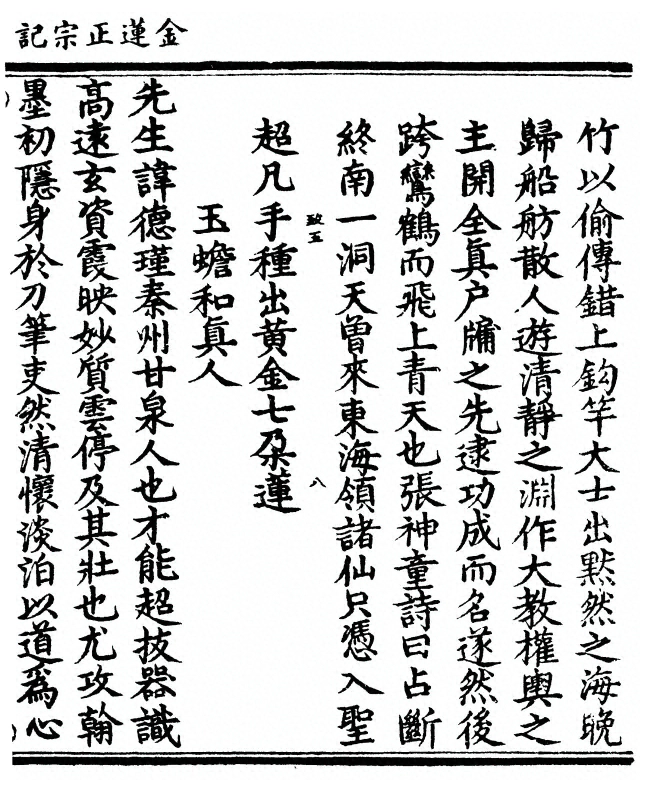 金蓮正宗記
竹以偷傳錯上鈎竿大士出默然之海晚
歸船舫散人遊清靜之淵作大教權輿之
主開全眞户牖之先逮功成而名遂然後
跨鸞鶴而飛上青天也張神童詩曰占斷
終南一洞天曾來東海領諸仙只憑入聖
致五
八
超凡手種出黄金七朶蓮
玉蟾和眞人
先生諱德瑾秦州甘泉人也才能超拔器識
高遠玄資霞映妙質雲停及其壯也尤攻翰
墨初隱身於刀筆吏然清懷淡泊以道爲心